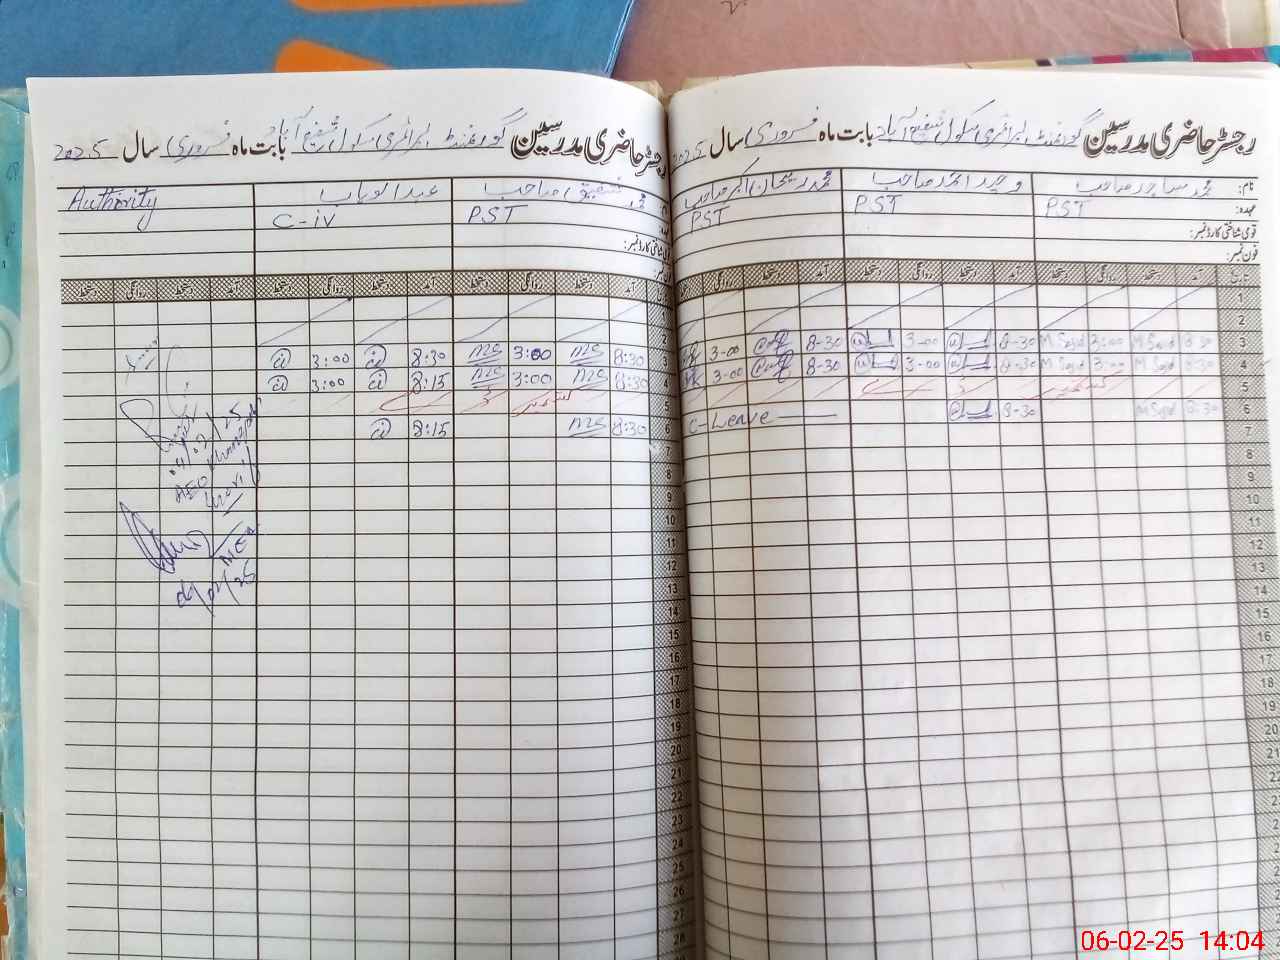 رجسٹر حاضری مدرسین گورنمنٹ پرائمری سکول شفیع آباد بابت ماہ فروری سال 2025
نام: محمد ساجد صاحب وحید احمد صاحب محمد ریحان اکبر صاحب
عہدہ: PST PST PST
قومی شناختی کارڈ نمبر:
فون نمبر:
آمد دستخط روانگی دستخط آمد دستخط روانگی دستخط آمد دستخط روانگی
1
2
3 8-30 M Sajid 3:00 M Sajid 8-30 3-00 8-30 3-00
4 8-30 M Sajid 3:00 M Sajid 8-30 3-00 8-30 3-00
5
6 8-30 M Sajid 8-30 C-Leave
7
8
9
10
11
12
13
14
15
16
17
18
19
20
21
22
23
24
25
26
27
رجسٹر حاضری مدرسین گورنمنٹ پرائمری سکول شفیع آباد بابت ماہ فروری سال 2025
محمد شفیق صاحب عبدالوہاب Authority
PST C-iv
قومی شناختی کارڈ نمبر:
فون نمبر:
آمد دستخط روانگی دستخط آمد دستخط روانگی دستخط آمد دستخط روانگی دستخط
2
3 8:30 MS 3:00 MS 8:30 3:00
4 8:30 MS 3:00 MS 8:15 3:00
5
6 8:30 MS 8:15
7
8
9
10
11
12
13
14
15
16
17
18
19
20
21
22
23
24
25
26
27
28
AEO
MEA
06-02-25 14:04